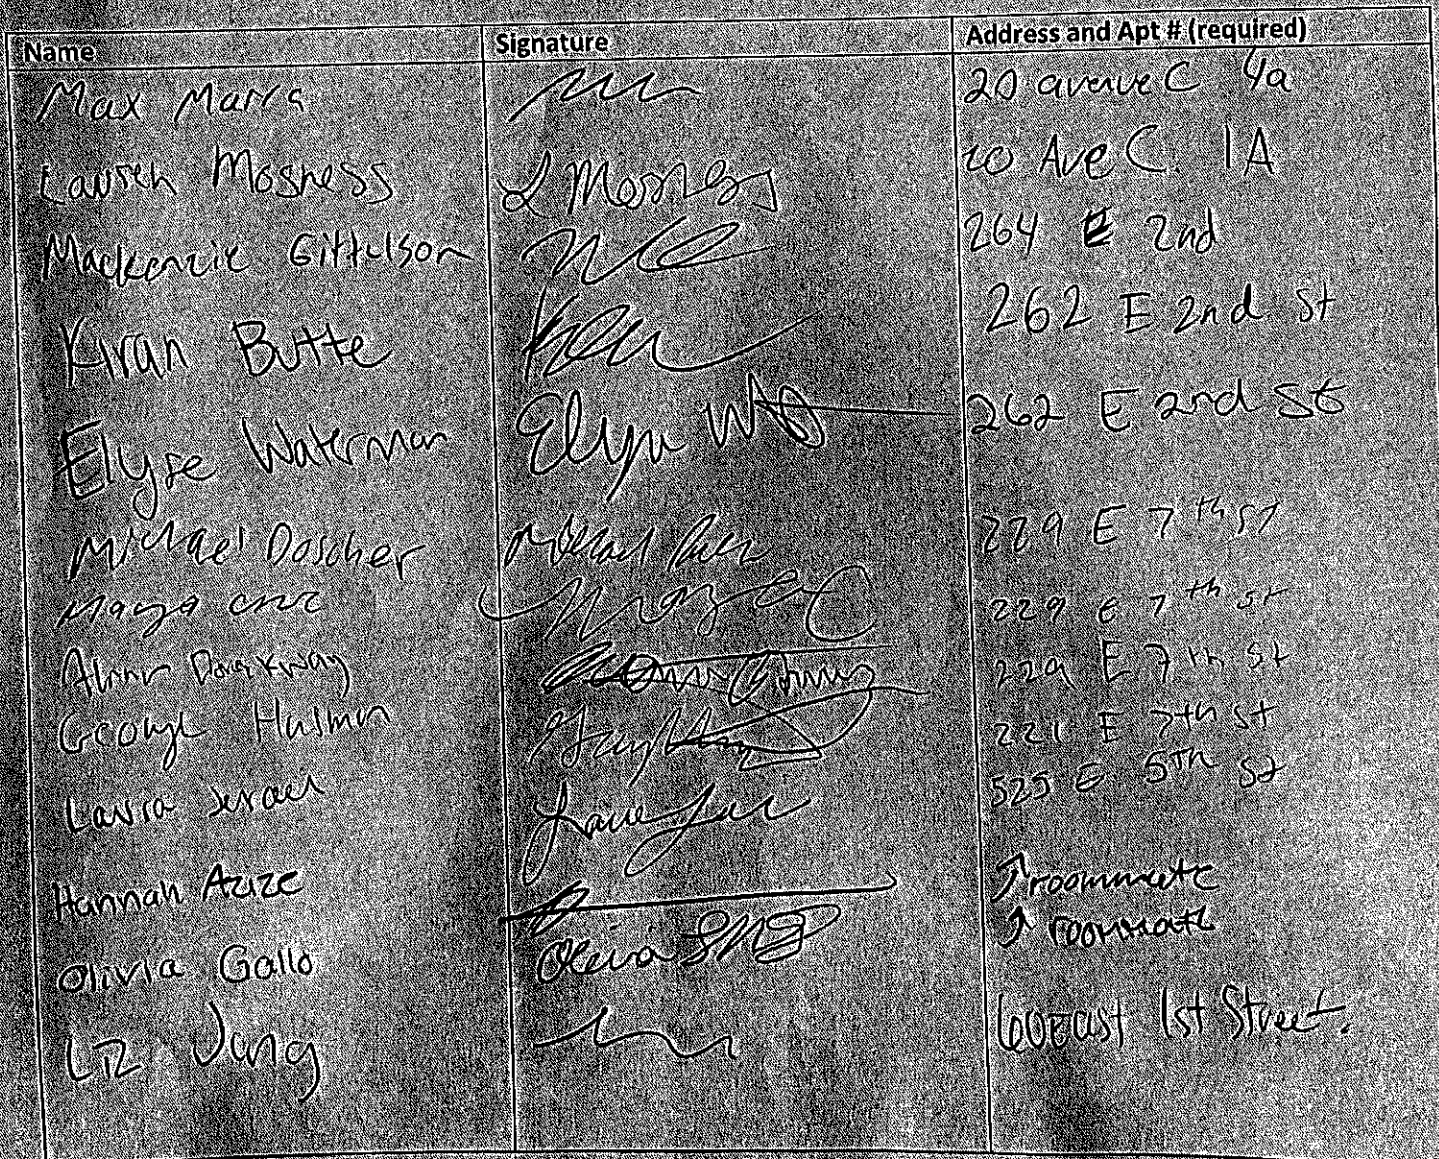 Name Signature Address and Apt # (required)
Max Marra 20 avenue C 4a
Lauren Mosness L Mosness 20 Ave C. 1A
Mackenzie Gittelson 264 E 2nd
Kiran Butte 262 E 2nd St
Elyse Waterman Elyse 262 E 2nd St
Michael Doscher Michael 229 E 7th ST
Maya 229 E 7th St
229 E 7th St
George 221 E 7th St
Laura 525 E 5TH St
Hannah Azize ↑ roommate
Olivia Gallo Olivia ↑ roommate
Liz Jung 60 East 1st Street.